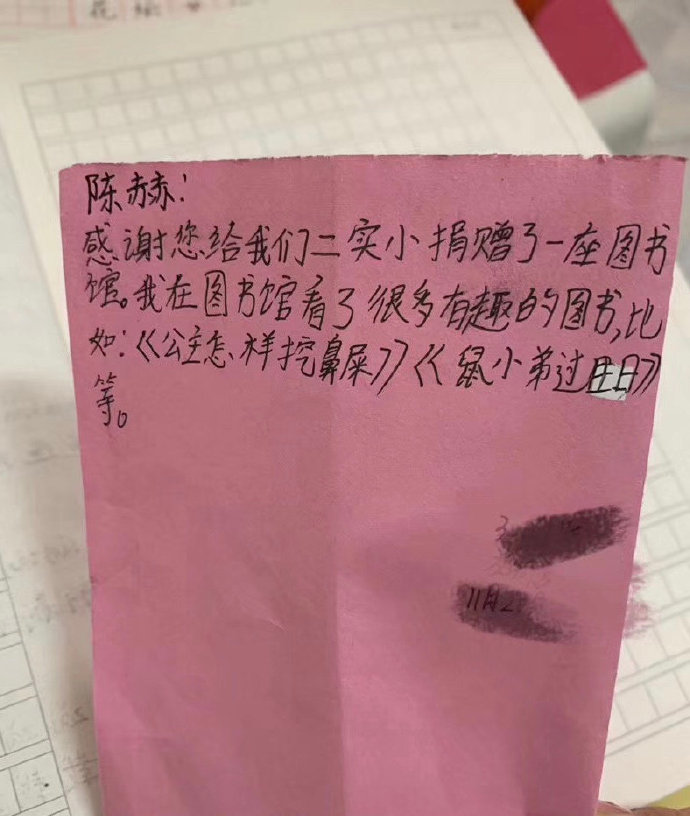 陈赫：
感谢您给我们二实小捐赠了一座图书
馆。我在图书馆看了很多有趣的图书，比
如：《公主怎样挖鼻屎》《鼠小弟过生日》
等。
11月2